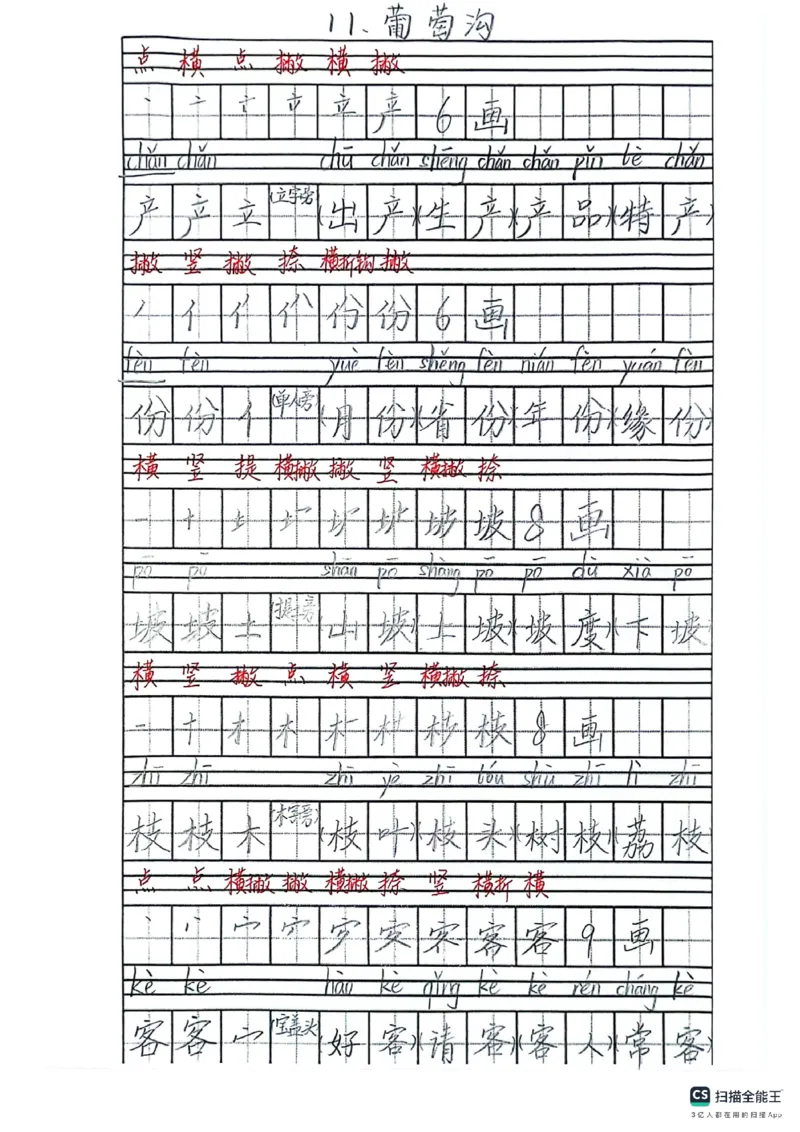 11、葡萄沟
点 横 点 撇 横 撇
产 6 画
chǎn chǎn chū chǎn shēng chǎn chǎn pǐn tè chǎn
产 产 立 (立字旁) (出 产)(生 产)(产 品)(特 产)
撇 竖 撇 捺 横折钩 撇
份 6 画
fèn fèn yuè fèn shěng fèn nián fèn yuán fèn
份 份 亻 (单人旁) (月 份)(省 份)(年 份)(缘 份)
横 竖 提 横撇 撇 竖 横撇 捺
坡 8 画
pō pō shān pō shàng pō pō dù xià pō
坡 坡 土 (提土旁) (山 坡)(上 坡)(坡 度)(下 坡)
横 竖 撇 点 横 竖 横撇 捺
一 十 才 木 枝 8 画
zhī zhī zhī yè zhī tóu shù zhī lì zhī
枝 枝 木 (木字旁) (枝 叶)(枝 头)(树 枝)(荔 枝)
点 点 横撇 撇 横撇 捺 竖 横折 横
客 9 画
kè kè hào kè qǐng kè kè rén cháng kè
客 客 宀 (宝盖头) (好 客)(请 客)(客 人)(常 客)
CS 扫描全能王
3亿人都在用的扫描App